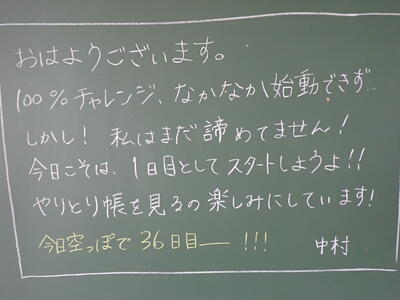 おはようございます。
100%チャレンジ、なかなか始動できず…
しかし! 私はまだ諦めてません!
今日こそは、1日目としてスタートしようよ!!
やりとり帳を見るの楽しみにしています!
今日空っぽで36日目― !!!
中村